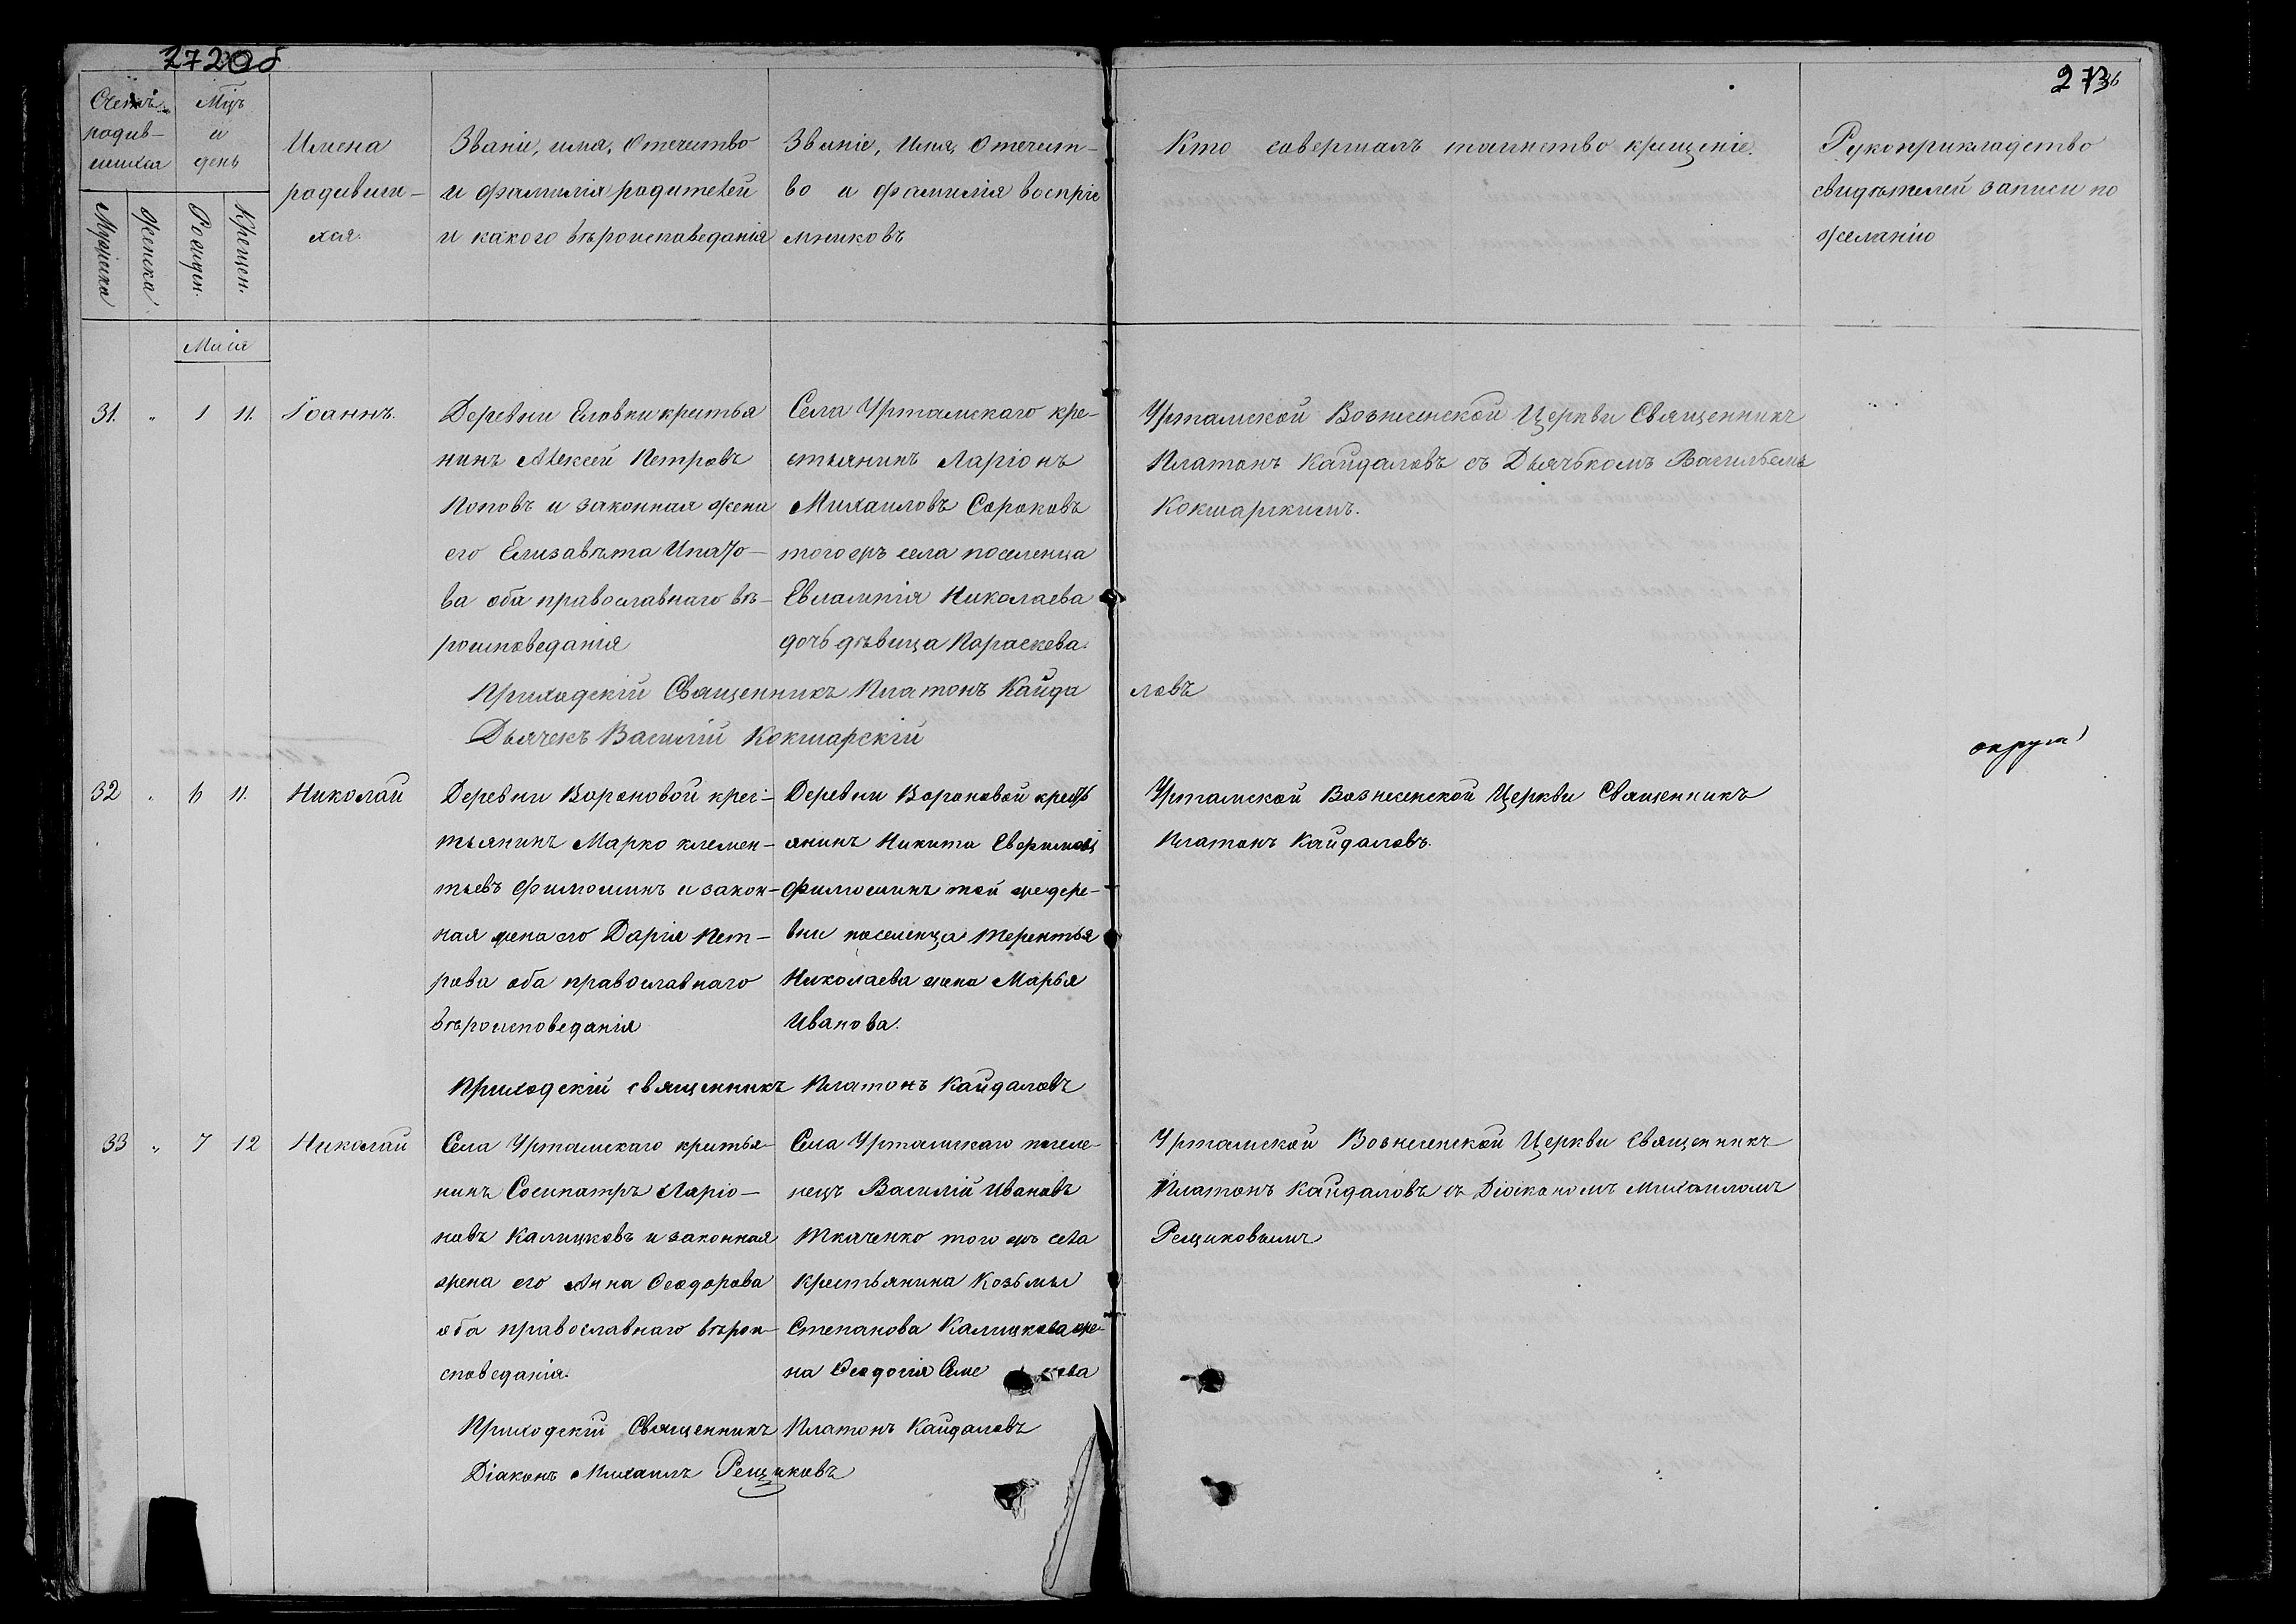 272об
273
Счетъ родив-шихся
Мцъ и день
Имена родивши-хся.
Званіе, имя, отечество
и фамилія родителей
и какого вѣроисповеданія
Званіе, имя, отечест-
во и фамилія воспріе
мниковъ
Кто совершалъ таинство крещеніе.
Рукоприкладство
свидѣтелей записи по
желанію
Мужеска
Женска
Рожден.
Крещен.
Маія
31. " 1 11. Іоаннъ.
Деревни Еловки кресть
янинъ Алексей Петровъ
Поповъ и законная жена
его Елисавѣта Ипато-
ва оба православнаго вѣ-
роисповеданія
Села Уртамскаго кре-
стьянинъ Ларіонъ
Михаиловъ Сороковъ
того жъ села поселенца
Евлампія Николаева
дочь дѣвица Параскева.
Уртамской Вознесенской Церкви Священникъ
Платонъ Кайдаловъ съ Дьячькомъ Васильемъ
Кокшарскимъ.
Приходскій Священникъ Платонъ Кайда
ловъ
Дьячекъ Василій Кокшарскій
округа
32 " 6 11. Николай
Деревни Вороновой крес-
тьянинъ Марко Клемен-
тьевъ Филюшинъ и закон-
ная жена его Дарія Пет-
рова оба православнаго
вѣроисповеданія
Деревни Вороновой кресть
янинъ Никита
Филюшинъ той же дере-
вни поселенца Терентья
Николаева жена Марья
Иванова.
Уртамской Вознесенской Церкви Священникъ
Платонъ Кайдаловъ.
Приходскій священникъ Платонъ Кайдаловъ
33 " 7 12 Николай
Села Уртамскаго крестья-
нинъ Сосипатръ Ларіо-
новъ Калицковъ и законная
жена его Анна Ѳеодорова
оба православнаго вѣрои-
споведанія.
Села Уртамскаго поселе-
нецъ Василій Ивановъ
Ткаченко того жъ села
крестьянина Козьмы
Степанова Калицкова же-
на Ѳеодосія
Уртамской Вознесенской Церкви Священникъ
Платонъ Кайдаловъ съ Діакономъ Михаиломъ
Рещиковымъ
Приходскій Священникъ Платонъ Кайдаловъ
Діаконъ Михаилъ Рещиковъ